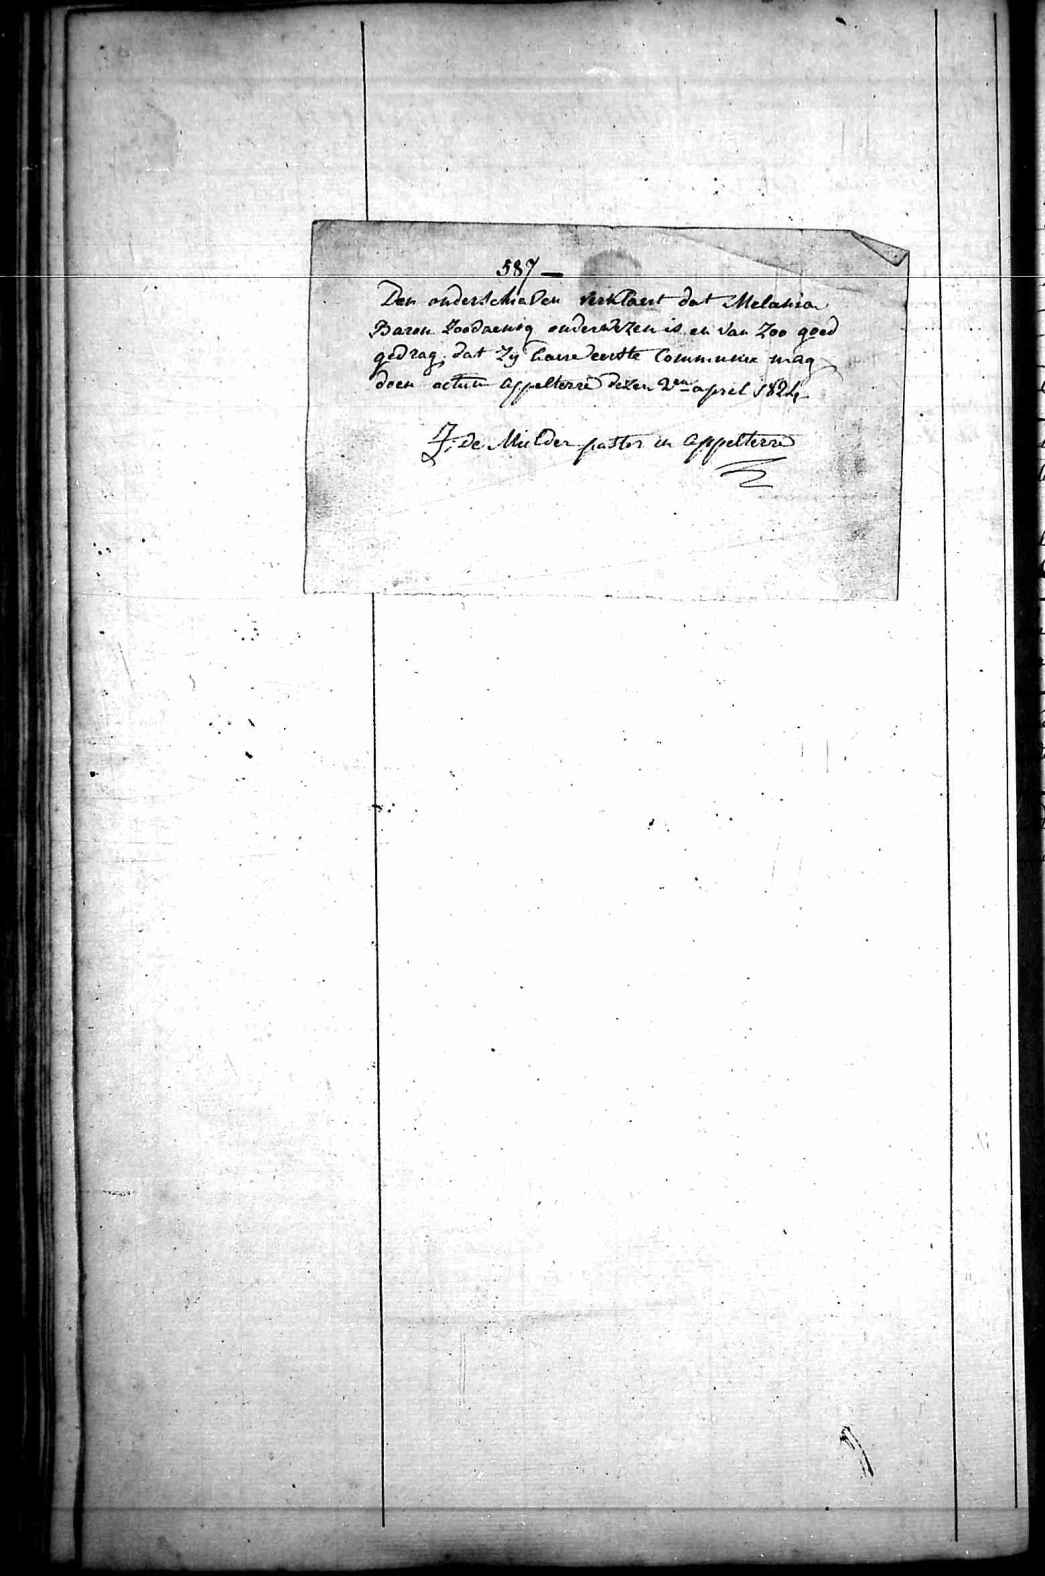 587 —
Den onderschreven verklaert dat Melania
Baron zoodaenig onderwezen is en van zoo goed
gedrag, dat zy haere eerste Communie mag
doen actum appelterre dezen 2en april 1824
J. de Mulder pastor in appelterre